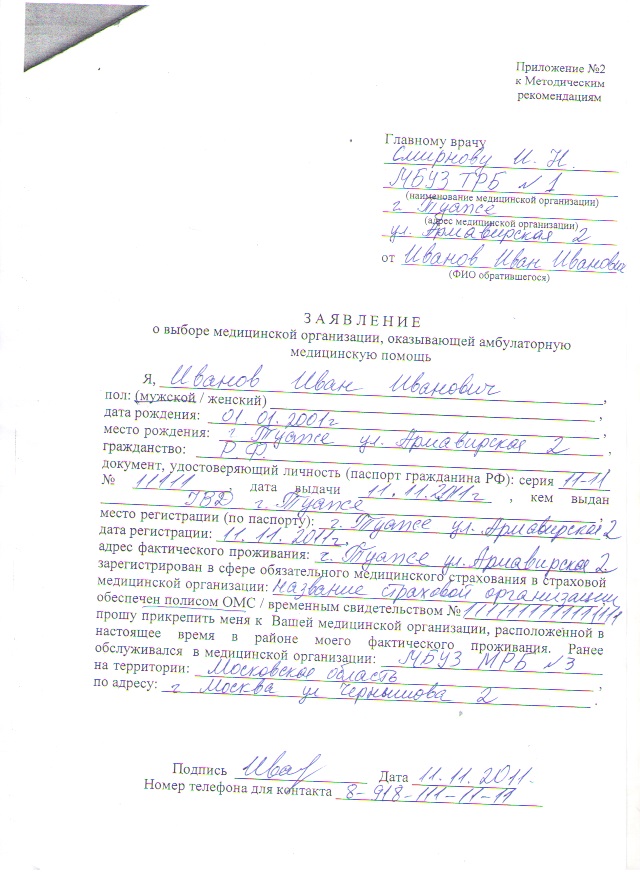 Приложение №2
к Методическим
рекомендациям
Главному врачу
Смирнову И. Н.
МБУЗ ТРБ №1
(наименование медицинской организации)
г Туапсе
(адрес медицинской организации)
ул. Армавирская 2
от Иванов Иван Иванович
(ФИО обратившегося)
ЗАЯВЛЕНИЕ
о выборе медицинской организации, оказывающей амбулаторную
медицинскую помощь
Я, Иванов Иван Иванович,
пол: (мужской / женский) ,
дата рождения: 01.01.2001г ,
место рождения: г Туапсе ул. Армавирская 2 ,
гражданство: РФ.
документ, удостоверяющий личность (паспорт гражданина РФ): серия 11-11
№ 11111 , дата выдачи 11.11.2011г , кем выдан
г. Туапсе
место регистрации (по паспорту): г. Туапсе ул. Армавирская 2
дата регистрации: 11.11.2011г,
адрес фактического проживания: г. Туапсе ул. Армавирская 2
зарегистрирован в сфере обязательного медицинского страхования в страховой
медицинской организации: Название страховой организации
обеспечен полисом ОМС / временным свидетельством №
прошу прикрепить меня к Вашей медицинской организации, расположенной в
настоящее время в районе моего фактического проживания. Ранее
обслуживался в медицинской организации: МБУЗ МРБ №3
на территории: Московская область ,
по адресу: г Москва ул Чернышова 2 .
Подпись Дата 11.11.2011.
Номер телефона для контакта 8-918-111-11-11